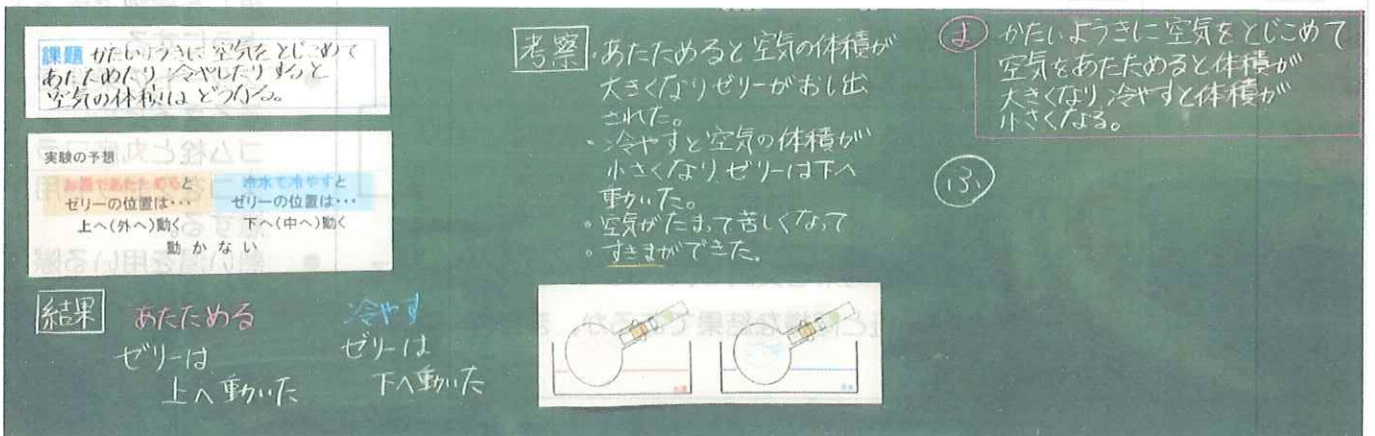 課題 かたいようきに空気をとじこめて
あたためたり冷やしたりすると
空気の体積はどうなる。
実験の予想
お湯であたためると
ゼリーの位置は・・・
上へ(外へ)動く
冷水で冷やすと
ゼリーの位置は・・・
下へ(中へ)動く
動かない
結果
あたためる
ゼリーは
上へ動いた
冷やす
ゼリーは
下へ動いた
考察
・あたためると空気の体積が
大きくなりゼリーがおし出
された。
・冷やすと空気の体積が
小さくなり、ゼリーは下へ
動いた。
・空気がたまって苦しくなって
・すきまができた。
お湯
冷水
ま かたいようきに空気をとじこめて
空気をあたためると体積が
大きくなり冷やすと体積が
小さくなる。
ふ